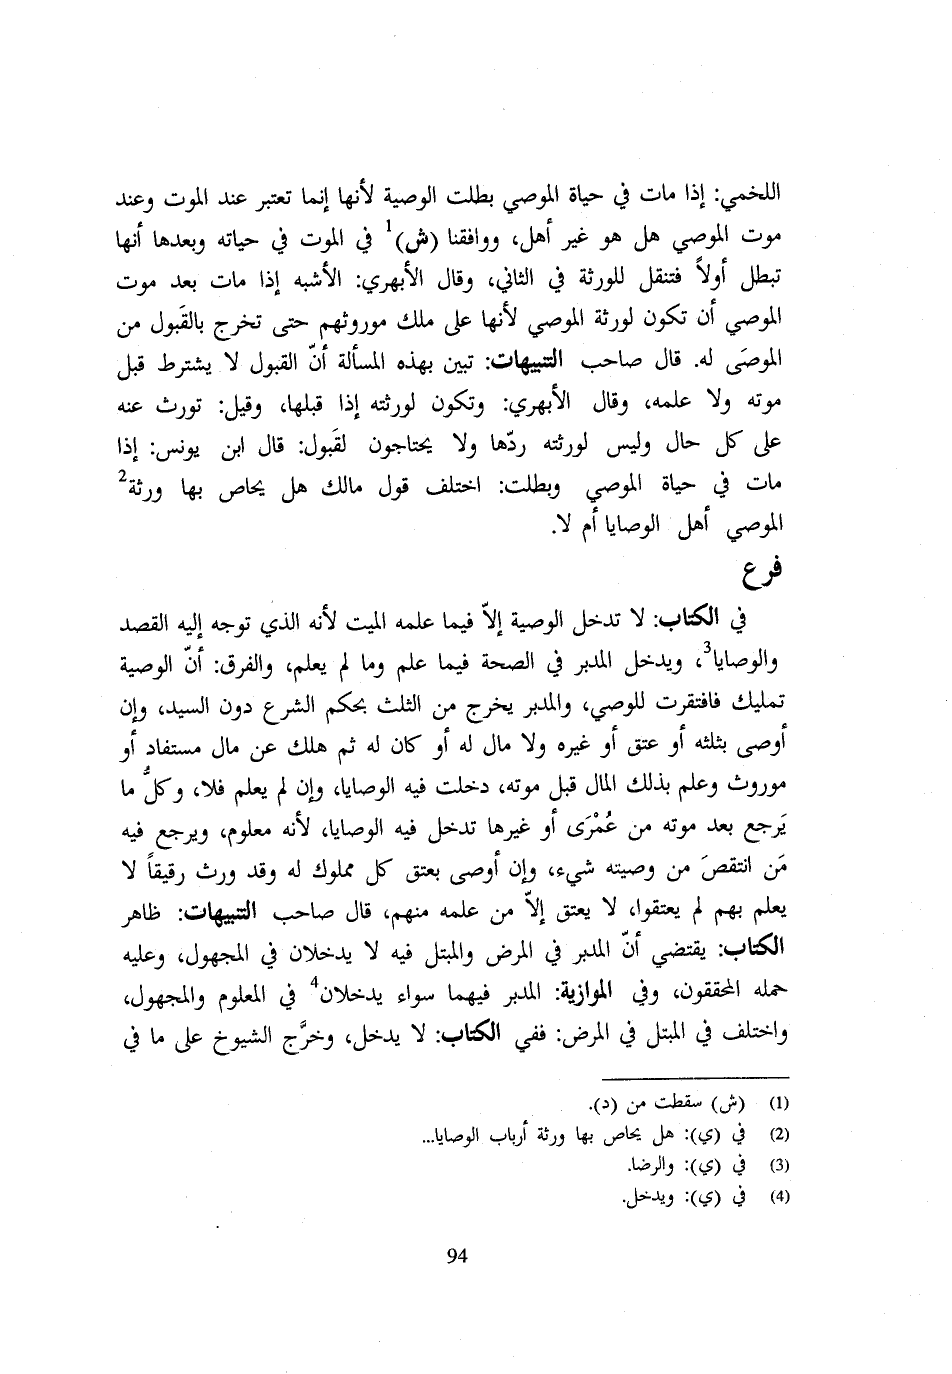 اللخمي: إذا مات في حياة الموصي بطلت الوصية لأنها إنما تعتبر عند الموت وعند
موت الموصي هل هو غير أهل، ووافقنا (ش)1 في الموت في حياته وبعدها أنها
تبطل أولاً فتنقل للورثة في الثاني، وقال الأبهري: الأشبه إذا مات بعد موت
الموصي أن تكون لورثة الموصي لأنها على ملك موروثهم حتى تخرج بالقَبول من
الموصَى له. قال صاحب التنبيهات: تبين بهذه المسألة أنّ القبول لا يشترط قبل
موته ولا علمه، وقال الأبهري: وتكون لورثته إذا قبلها، وقيل: تورث عنه
على كل حال وليس لورثته ردّها ولا يحتاجون لقَبول: قال ابن يونس: إذا
مات في حياة الموصي وبطلت: اختلف قول مالك هل يحاص بها ورثة2
الموصي أهل الوصايا أم لا.
فرع
في الكتاب: لا تدخل الوصية إلاّ فيما علمه الميت لأنه الذي توجه إليه القصد
والوصايا3، ويدخل المدبر في الصحة فيما علم وما لم يعلم، والفرق: أنّ الوصية
تمليك فافتقرت للوصي، والمدبر يخرج من الثلث بحكم الشرع دون السيد، وإن
أوصى بثلثه أو عتق أو غيره ولا مال له أو كان له ثم هلك عن مال مستفاد أو
موروث وعلم بذلك المال قبل موته، دخلت فيه الوصايا، وإن لم يعلم فلا، وكلُّ ما
يَرجع بعد موته من عُمْرَى أو غيرها تدخل فيه الوصايا، لأنه معلوم، ويرجع فيه
مَن انتقصَ من وصيته شيء، وإن أوصى بعتق كل مملوك له وقد ورث رقيقاً لا
يعلم بهم لم يعتقوا، لا يعتق إلاّ من علمه منهم، قال صاحب التنبيهات: ظاهر
الكتاب: يقتضي أنّ المدبر في المرض والمبتل فيه لا يدخلان في المجهول، وعليه
حمله المحققون، وفي الموازية: المدبر فيهما سواء يدخلان4 في المعلوم والمجهول،
واختلف في المبتل في المرض: ففي الكتاب: لا يدخل، وخرَّج الشيوخ على ما في
(1) (ش) سقطت من (د).
(2) في (ي): هل يحاص بها ورثة أرباب الوصايا...
(3) في (ي): والرضا.
(4) في (ي): ويدخل.
94